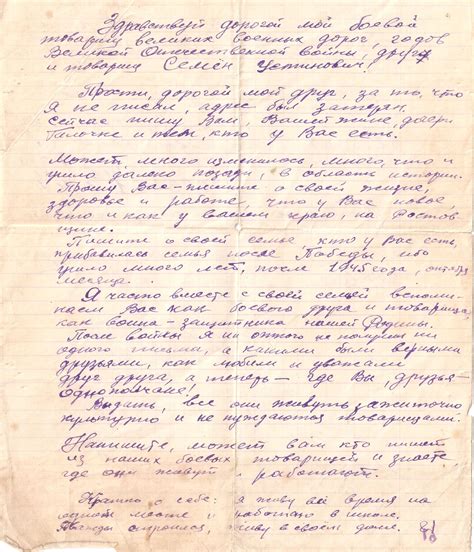 Здравствуй дорогой мой боевой
товарищ великих военных дорог, годов
Великой Отечественной войны, друг
и товарищ Семён Устинович.
Прости, дорогой мой друг, за то, что
я не писал, адрес был затерян.
Сейчас пишу Вам, Вашей жене, дочери
Галочке и тем, кто у Вас есть.
Может, много изменилось, много, что и
ушло далеко позади, в область истории.
Прошу Вас - пишите о своей жизни,
здоровье и работе, что у Вас новое,
что и как у вашем краю, на Ростов
щине.
Пишите о своей семье, кто у Вас есть,
прибавилась семья после Победы, ибо
ушло много лет, после 1945 года, октября
месяца.
Я часто вместе с своей семьей вспоми-
наем Вас как боевого друга и товарища,
как воина - защитника нашей Родины.
После войны я ни одного не получил ни
одного письма, а какими были верными
друзьями, как любили и уважали
друг друга, а теперь - где Вы, друзья-
однополчане!
Видать, все они живут зажиточно
культурно и не нуждаются товарищами.
Напишите, может вам кто пишет
из наших боевых товарищей и знаете,
где они живут работают.
Кратко о себе: я живу всё время на
одном месте и работаю в школе.
живу в своем доме.